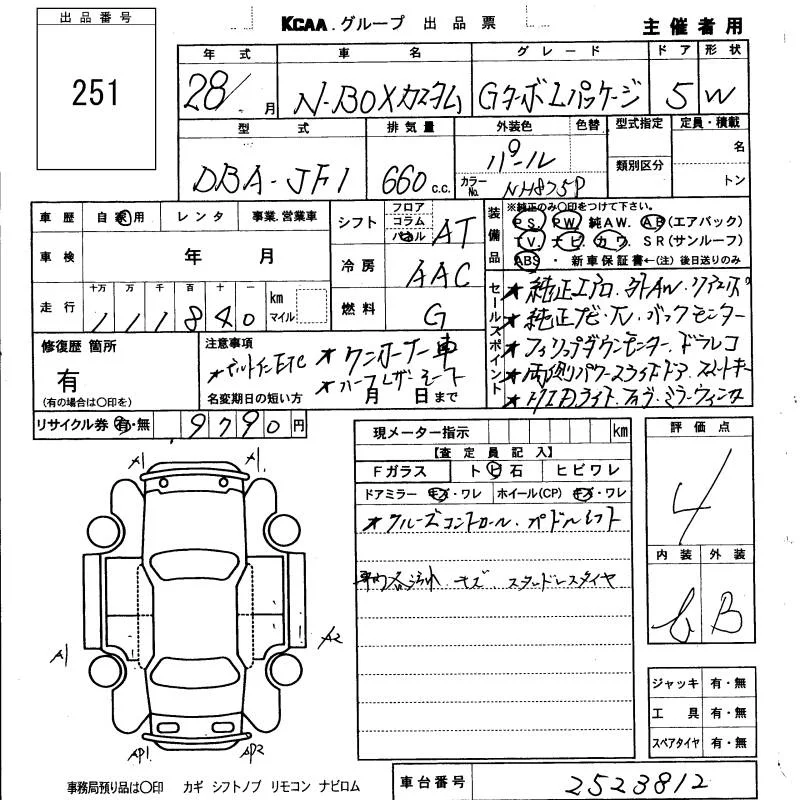 出品番号
251
KCAA.グループ 出品票
主催者用
年式 車名 グレード ドア 形状
28/ 月 N-BOXカスタム GターボLパッケージ 5 W
型式 排気量 外装色 色替 型式指定 定員・積載
DBA-JF1 660 c.c. パール
名
カラーNo. NH875P 類別区分
トン
車歴 自家用 レンタ 事業.営業車
シフト フロア コラム パネル AT
車検 年 月
冷房 AAC
走行 十万 万 千 百 十 一 km マイル
111840
燃料 G
装備品 ※純正のみ〇印をつけて下さい。
PS. PW. 純AW. AB(エアバック)
TV. ナビ. カワ. SR(サンルーフ)
ABS ・ 新車保証書←(注) 後日送りのみ
セールスポイント
★純正エアロ. 外AW. リアスポ
★純正ナビ・TV. バックモニター
★フィリップダウンモニター. ドラレコ
★両側パワースライドドア. スマートキー
★HIDライト. フォグ. ミラーウィンカ
修復歴 箇所
有
(有の場合は〇印を)
注意事項
★ビルトインETC ★ワンオーナー車
★ハーフレザーシート
名変期日の短い方 月 日まで
リサイクル券 有・無 9790円
現メーター指示 km
【査定員記入】
Fガラス トビ石 ヒビワレ
ドアミラー キズ・ワレ ホイール(CP) キズ・ワレ
★クルーズコントロール. パドルシフト
車内各汚れ キズ スタッドレスタイヤ
評価点
4
内装 外装
b B
A1 A1
A1 A2
AP1 AP2
ジャッキ 有・無
工具 有・無
スペアタイヤ 有・無
事務局預り品は〇印 カギ シフトノブ リモコン ナビロム
車台番号 2523812